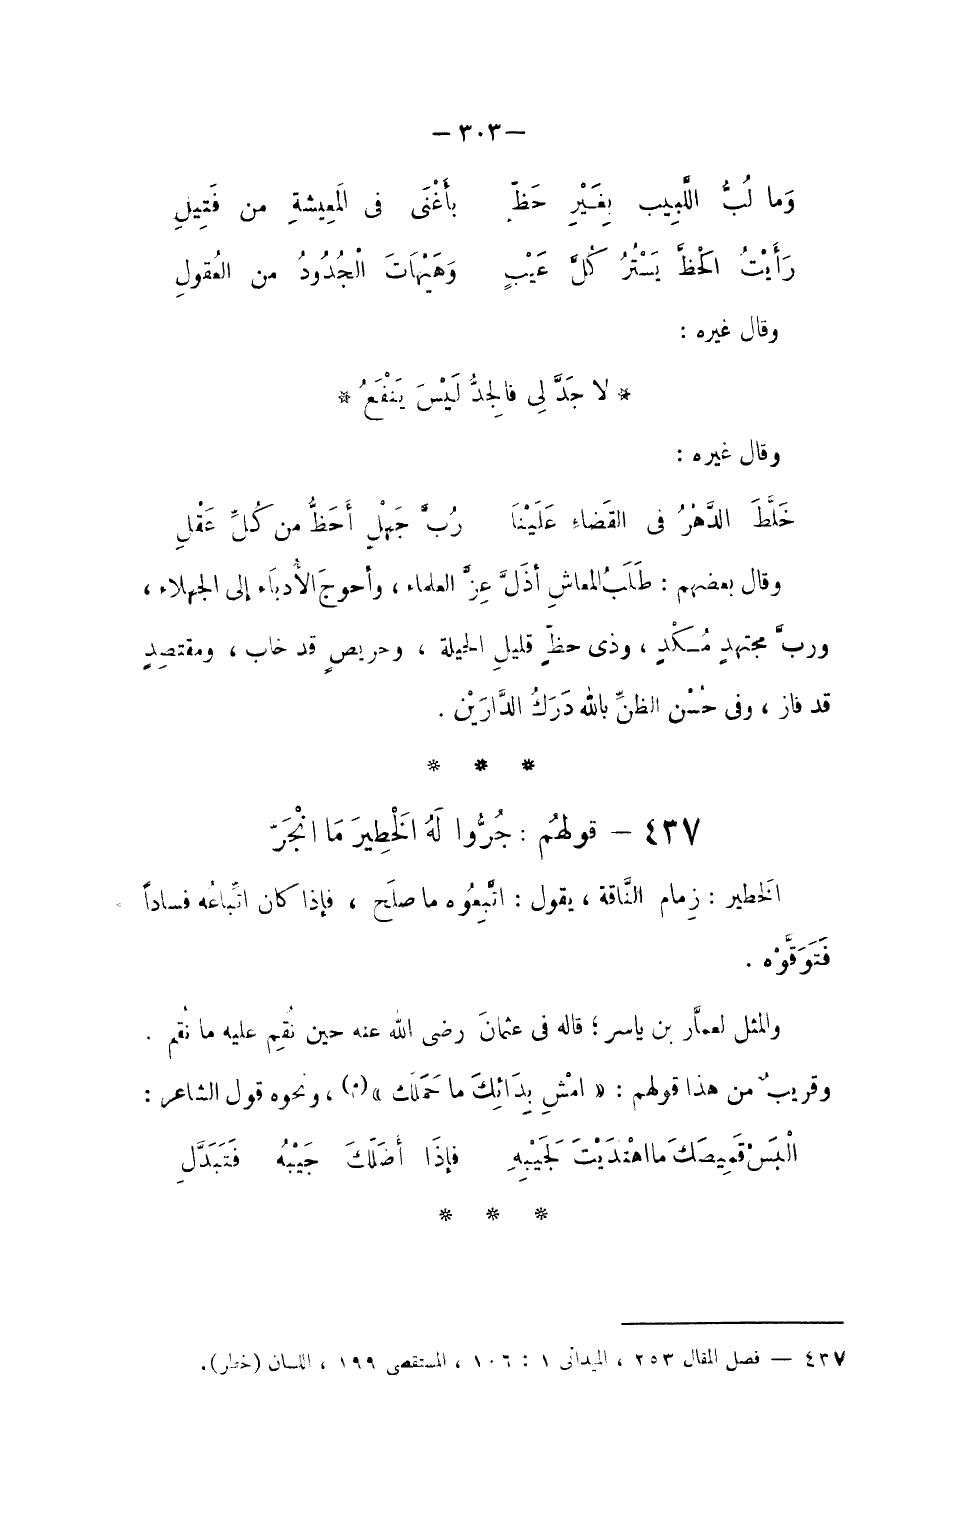 — ٣٠٣ —
وَما لُبُّ اللَّبِيبِ بِغَيْرِ حَظّ بأَغْنَى فى المَعِيشةِ من فَتِيلِ
رَأَيْتُ الحْظَّ يَسْتُرُ كُلَّ عَيْبٍ وَهَيْهَاتَ الْجُدُودُ من العُقولِ
وقال غيره :
* لا جَدَّ لِى فالجِدُّ لَيْسَ يَنْفَعُ *
وقال غيره :
خَلَّطَ الدَّهْرُ فى القَضَاءِ عَلَيْنَا رُبَّ جَهْلٍ أَحَظُّ من كُلِّ عَقْلِ
وقال بعضهم : طَلَبُ المعاشِ أذَلَّ عِزَّ العلماء ، وأحوجَ الأُدبَاء إلى الجهلاء ،
وربَّ مجتهدٍ مُكْدٍ ، وذى حظّ قليلِ الحيلة ، وحريصٍ قد خاب ، ومقتصِدٍ
قد فاز ، وفى حُسْن الظنِّ بالله دَرَكُ الدَّارَيْن .
* * *
٤٣٧ — قولهُم : جُرُّوا لَهُ الَخْطِيرَ مَا انْجَرَّ
الَخطير : زِمام النَّاقة ، يقول : اتَّبِعُوه ما صلَح ، فإذا كان اتِّباعُه فساداً
فَتَوَقَّوْه .
والمثل لعمار بن ياسر ؛ قاله فى عثمانَ رضى الله عنه حين نُقِم عليه ما نُقم .
وقريبٌ من هذا قولهم : « امْشِ بِدَائِكَ ما حَمَلَكَ »(م) ، ونحوه قول الشاعر :
الْبَسْ قَمِيصَكَ ما اهْتَدَيْتَ لَجَيْبِهِ فإذَا أَضَلَّكَ جَيْبُهُ فَتَبَدَّلِ
* * *
٤٣٧ — فصل المقال ٢٥٣ ، الميدانى ١ : ١٠٦ ، المستقصى ١٩٩ ، اللسان (خطر).